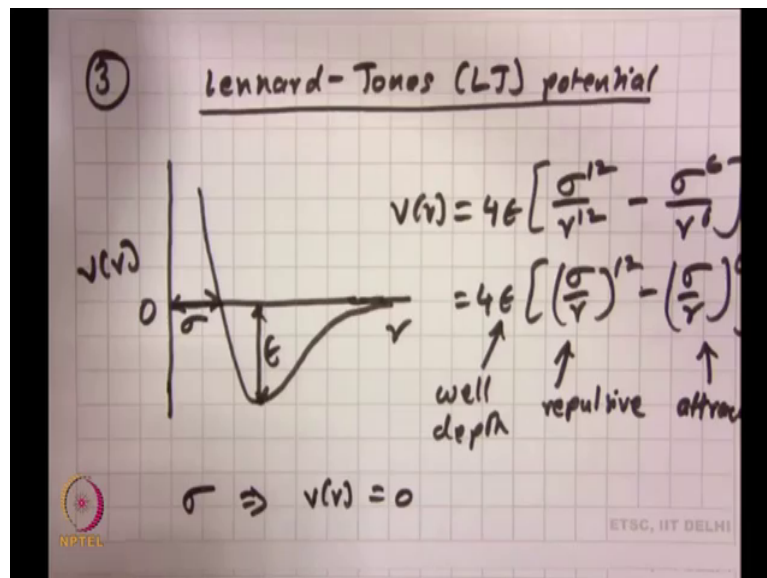 ③ Lennard-Jones (LJ) potential
V(r) = 4ϵ[σ^12/r^12 - σ^6/r^6]
V(r)
0
σ
ϵ
r
= 4ϵ[(σ/r)^12 - (σ/r)
well depth
repulsive
attrac
σ ⇒ V(r) = 0
NPTEL
ETSC, IIT DELHI